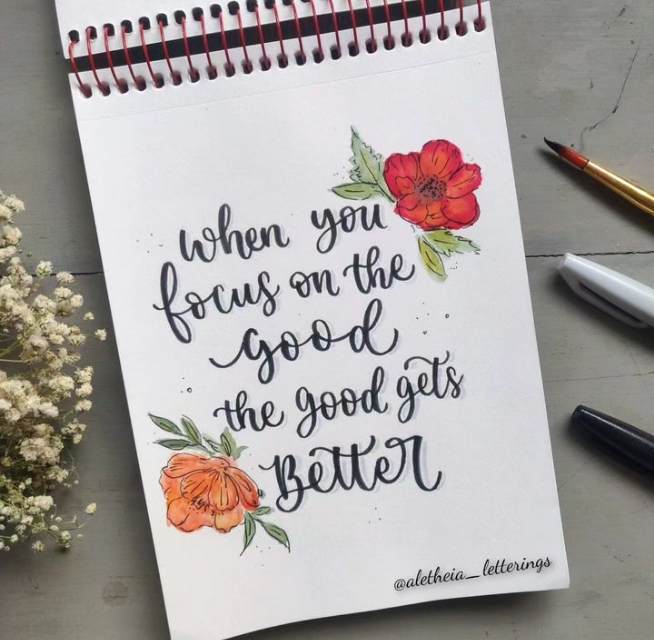 When you
focus on the
Good
the good gets
Better
@aletheia_letterings